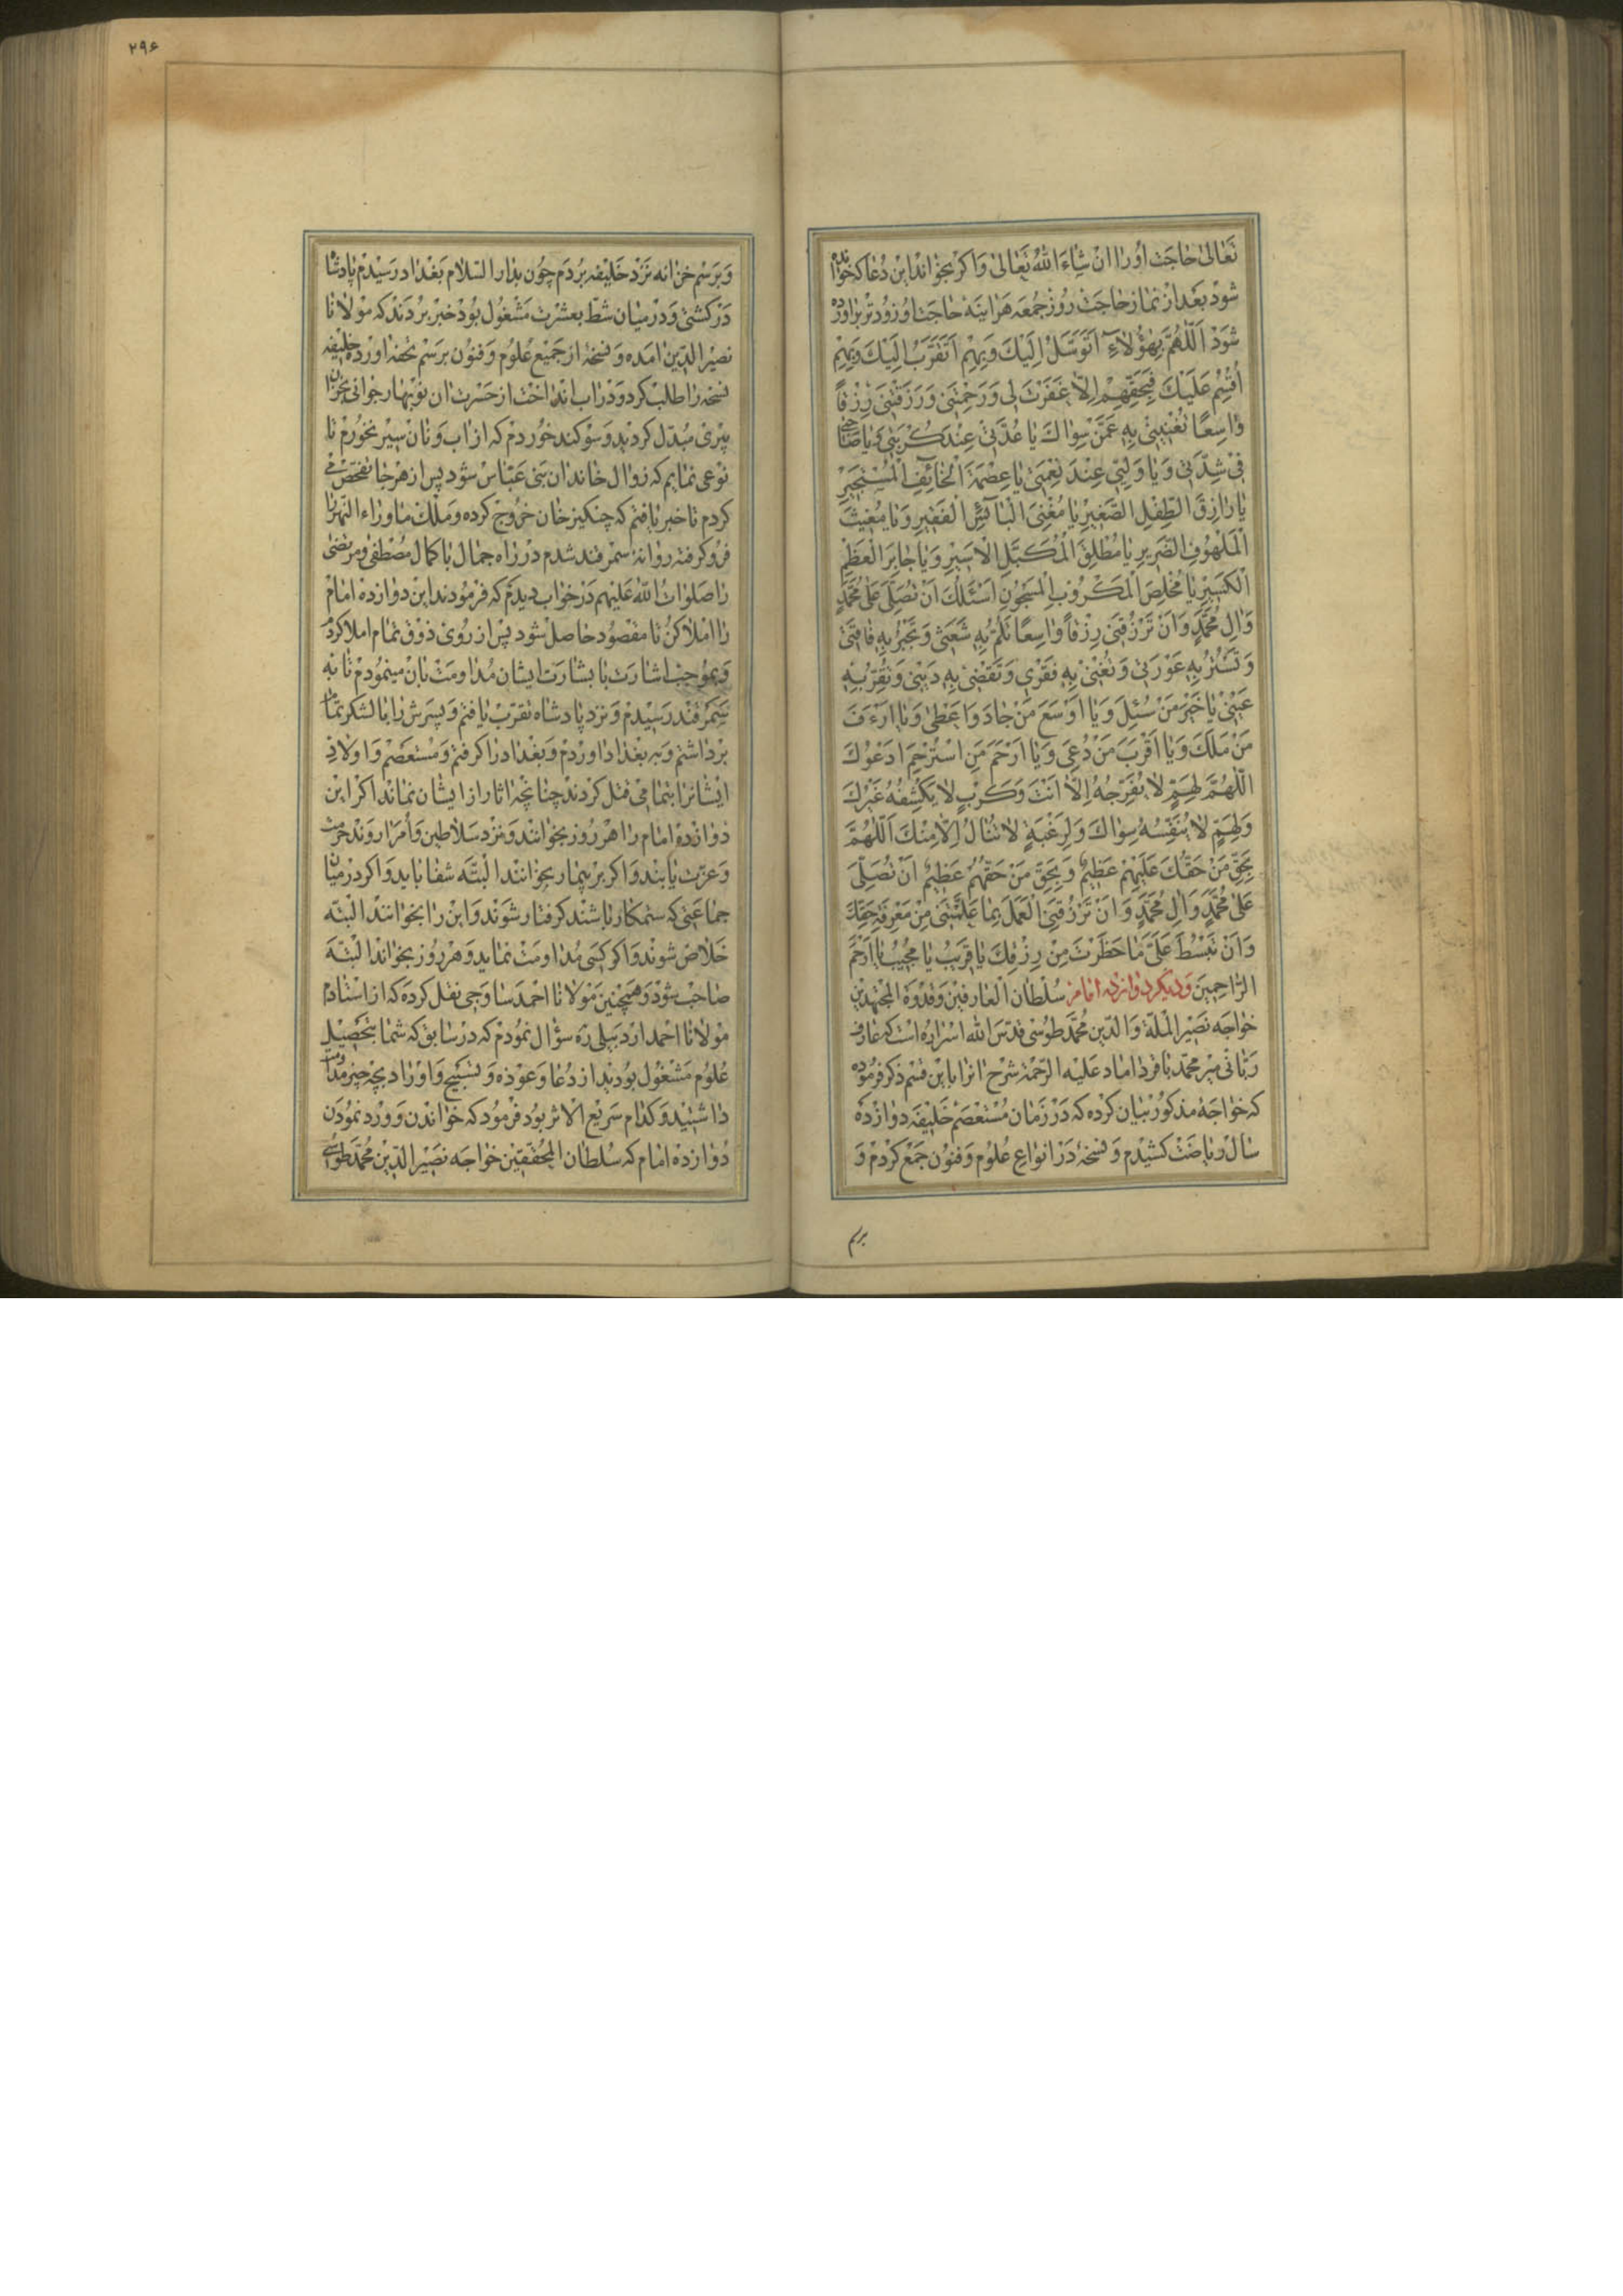 تَعٰالىٰ حٰاجَت اُورٰا اِنْ شٰاءَ اللّٰهُ تَعٰالىٰ وَاکر بخوٰاند اين دُعٰا که خوٰانده
شود بَعْد از نماز حٰاجَت رُوز جُمعَه هَراينَه حٰاجَت او زُودتر براورده
شَوَدْ اَللّٰهُمَّ بِهٰؤُلاٰءِ اَتَوَسَّلُ اِلَيْكَ وَبِهِمْ اَتَقَرَّبُ اِلَيْكَ وَبِهِمْ
اُقْسِمُ عَلَيْكَ فَبِحَقِّهِمْ اِلاّٰ غَفَرْتَ لى وَرَحِمْتَنى وَرَزَقْتَنى رِزْقاً
وٰاسِعًا تُغْنِينى بِهِ عَمَّنْ سِوٰاكَ يٰا عُدَّتى عِنْدَ كُرْبَتى وَيٰا صٰاحِبى
فى شِدَّتى وَيٰا وَلِيّى عِنْدَ نِعْمَتى يٰا عِصْمَةَ الْخٰائِفِ الْمُسْتَجيرِ
يٰا رٰازِقَ الطِّفْلِ الصَّغيرِ يٰا مُغْنِىَ الْبٰائِسِ الْفَقيرِ وَيٰا مُغيثَ
الْمَلْهُوفِ الضَّريرِ يٰا مُطْلِقَ الْمُكَبَّلِ الْاَسيرِ وَيٰا جٰابِرَ الْعَظْمِ
الْكَسيرِ يٰا مُخْلِصَ الْمَكْرُوبِ الْمَسْجُونِ اَسْئَلُكَ اَنْ تُصَلِّىَ عَلىٰ مُحَمَّدٍ
وَاٰلِ مُحَمَّدٍ وَاَنْ تَرْزُقَنى رِزْقاً وٰاسِعًا تَلُمُّ بِهِ شَعَثى وَتَجْبُرُ بِهِ فٰاقَتى
وَتَسْتُرُ بِهِ عَوْرَتى وَتُغْنى بِهِ فَقْرى وَتَقْضى بِهِ دَيْنى وَتُقِرُّ بِهِ
عَيْنى يٰا خَيْرَ مَنْ سُئِلَ وَيٰا اَوْسَعَ مَنْ جٰادَ وَاَعْطىٰ وَيٰا اَرْءَفَ
مَنْ مَلَكَ وَيٰا اَقْرَبَ مَنْ دُعِىَ وَيٰا اَرْحَمَ مَنِ اسْتُرْحِمَ اَدْعُوكَ
اللّٰهُمَّ لِهَمٍّ لاٰ يُفَرِّجُهُ اِلاّٰ اَنْتَ وَكَرْبٍ لاٰ يَكْشِفُهُ غَيْرُكَ
وَلِهَمٍّ لاٰ يُنَفِّسُهُ سِوٰاكَ وَلِرَغْبَةٍ لاٰ تُنٰالُ اِلاّٰ مِنْكَ اَللّٰهُمَّ
بِحَقِّ مَنْ حَقُّكَ عَلَيْهِمْ عَظيمٌ وَبِحَقِّ مَنْ حَقُّهُمْ عَظيمٌ اَنْ تُصَلِّىَ
عَلىٰ مُحَمَّدٍ وَاٰلِ مُحَمَّدٍ وَاَنْ تَرْزُقَنِى الْعَمَلَ بِمٰا عَلَّمْتَنى مِنْ مَعْرِفَةِ حَقِّكَ
وَاَنْ تَبْسُطَ عَلَىَّ مٰا حَظَرْتَ مِنْ رِزْقِكَ يٰا قَريبُ يٰا مُجيبُ يٰا اَرْحَمَ
الرّٰاحِمينَ وَديکر دوٰازده امٰام از سُلْطٰان الْعٰارِفينْ وَقُدْوَة الْمُجْتَهِدين
خوٰاجَه نَصيرالْمِلَّة وَالدّين مُحَمَّد طُوسى قَدَّسَ اللّٰه اَسْرٰارَهُ است که عٰارف
رَبّٰانى مير محَمَّد بٰاقر دٰامٰاد عَلَيْه الرَّحْمَة شَرْح انرٰا باين قسْم ذکر فرمُوده
که خوٰاجَهٔ مذکور بَيٰان کرده که دَر زَمٰان مُسْتَعْصَم خَليفَه دوٰازْدَه
سٰال ريٰاضَت کشيْدم وَ نسخهٔ دَر انوٰاع عُلُوم وَ فنُون جَمْع کردم وَ
برسم
۲۹۶
وَ بَرَسْم خزٰانه نزد خَليفه بُردَم چُون بدٰار السّلام بَغْدٰاد رَسيْدم پٰادشٰاه
دَر کشتى وَ دَر ميٰان شطّ بعشرت مَشْغُول بُود خبر بردند که مَوْلاٰنٰا
نصيرالدّين امَده وَ نسخهٔ از جَميْع عُلُوم وَ فنُون برَسْم تحفه اورده خَليفه
نسخه رٰا طلب کرد وَ دَر اب اندٰاخت از حَسْرت ان نوبَهٰار جوٰانى بخزٰان
پيرى مُبدّل کرديد وَ سوکند خوردم که از اب وَ نٰان سير نخورم تٰا
نوعى نمٰايم که زوٰال خٰاندٰان بنى عَبّٰاس شود پس از هر جٰا تفحّص مى
کردم تٰا خبر يٰافتم که چنکيز خٰان خروج کرده وَ ملک مٰاوَرٰاء النّهر رٰا
فرو کرفته روٰانهٔ سمرقند شدم در رٰاه جمٰال بٰاکمٰال مُصْطفى و مرتضى
رٰا صلوٰاتُ اللّٰه عَليهم دَر خوٰاب ديدَم که فرمُودند اين دوٰازده امٰام
رٰا امْلاکُن تٰا مقصُود حٰاصل شود پس از رُوى ذوق تمٰام املا کردم
وَ بموُجب اشٰارت بٰابشٰارت ايشٰان مُدٰاومَت بٰان مينمُودم تٰا به
سَمَرْقند رَسيدم وَ نزد پٰادشٰاه تقرّب يٰافتم وَ پسرش رٰا بٰا لشکر تمٰام
بردٰاشتم وَ بر بغدٰاد اوردم وَ بغدٰاد رٰا کرفتم وَ مستعصم وَ اولاد
ايشٰانرٰا بتمٰامى قتل کردند چنٰانچه اثار از ايشٰان نمٰاند اکر اين
دوٰازده امٰام رٰا هر روز بخوٰانند وَ نزد سَلاٰطين وَ اُمَرٰا روَند حُرمت
وَ عزّت يٰابند وَ اکر بر بيمٰار بخوٰانند البتّه شفٰا يٰابد وَ اکر در ميٰان
جمٰاعَتى که ستمکٰار بٰاشند کرفتٰار شوند وَ اين رٰا بخوٰانند البتّه
خَلاص شوند وَ اکر کسى مُدٰاومَت نمٰايد وَ هر روز بخوٰاند البتّه
صٰاحب شود وَ هَمچنين مَوْلاٰنٰا احمَد سٰاوَجى نقل کرده که از استٰادم
مَوْلاٰنٰا احمد اردبيلى ره سؤٰال نمُودم که در سٰابق که شمٰا بتحصيل
علُوم مشغُول بوديد از دُعٰا وَ عوذه وَ تسبيح وَ اوْرٰاد بچه چيز مدٰاومت
دٰاشتيد وَ کدٰام سَريع الاثر بود فرمُود که خوٰاندن وَ ورد نمُودَن
دُوٰازدَه امٰام که سُلطٰان المُحقّقين خوٰاجَه نصيرالدّين مُحمّد طوسى